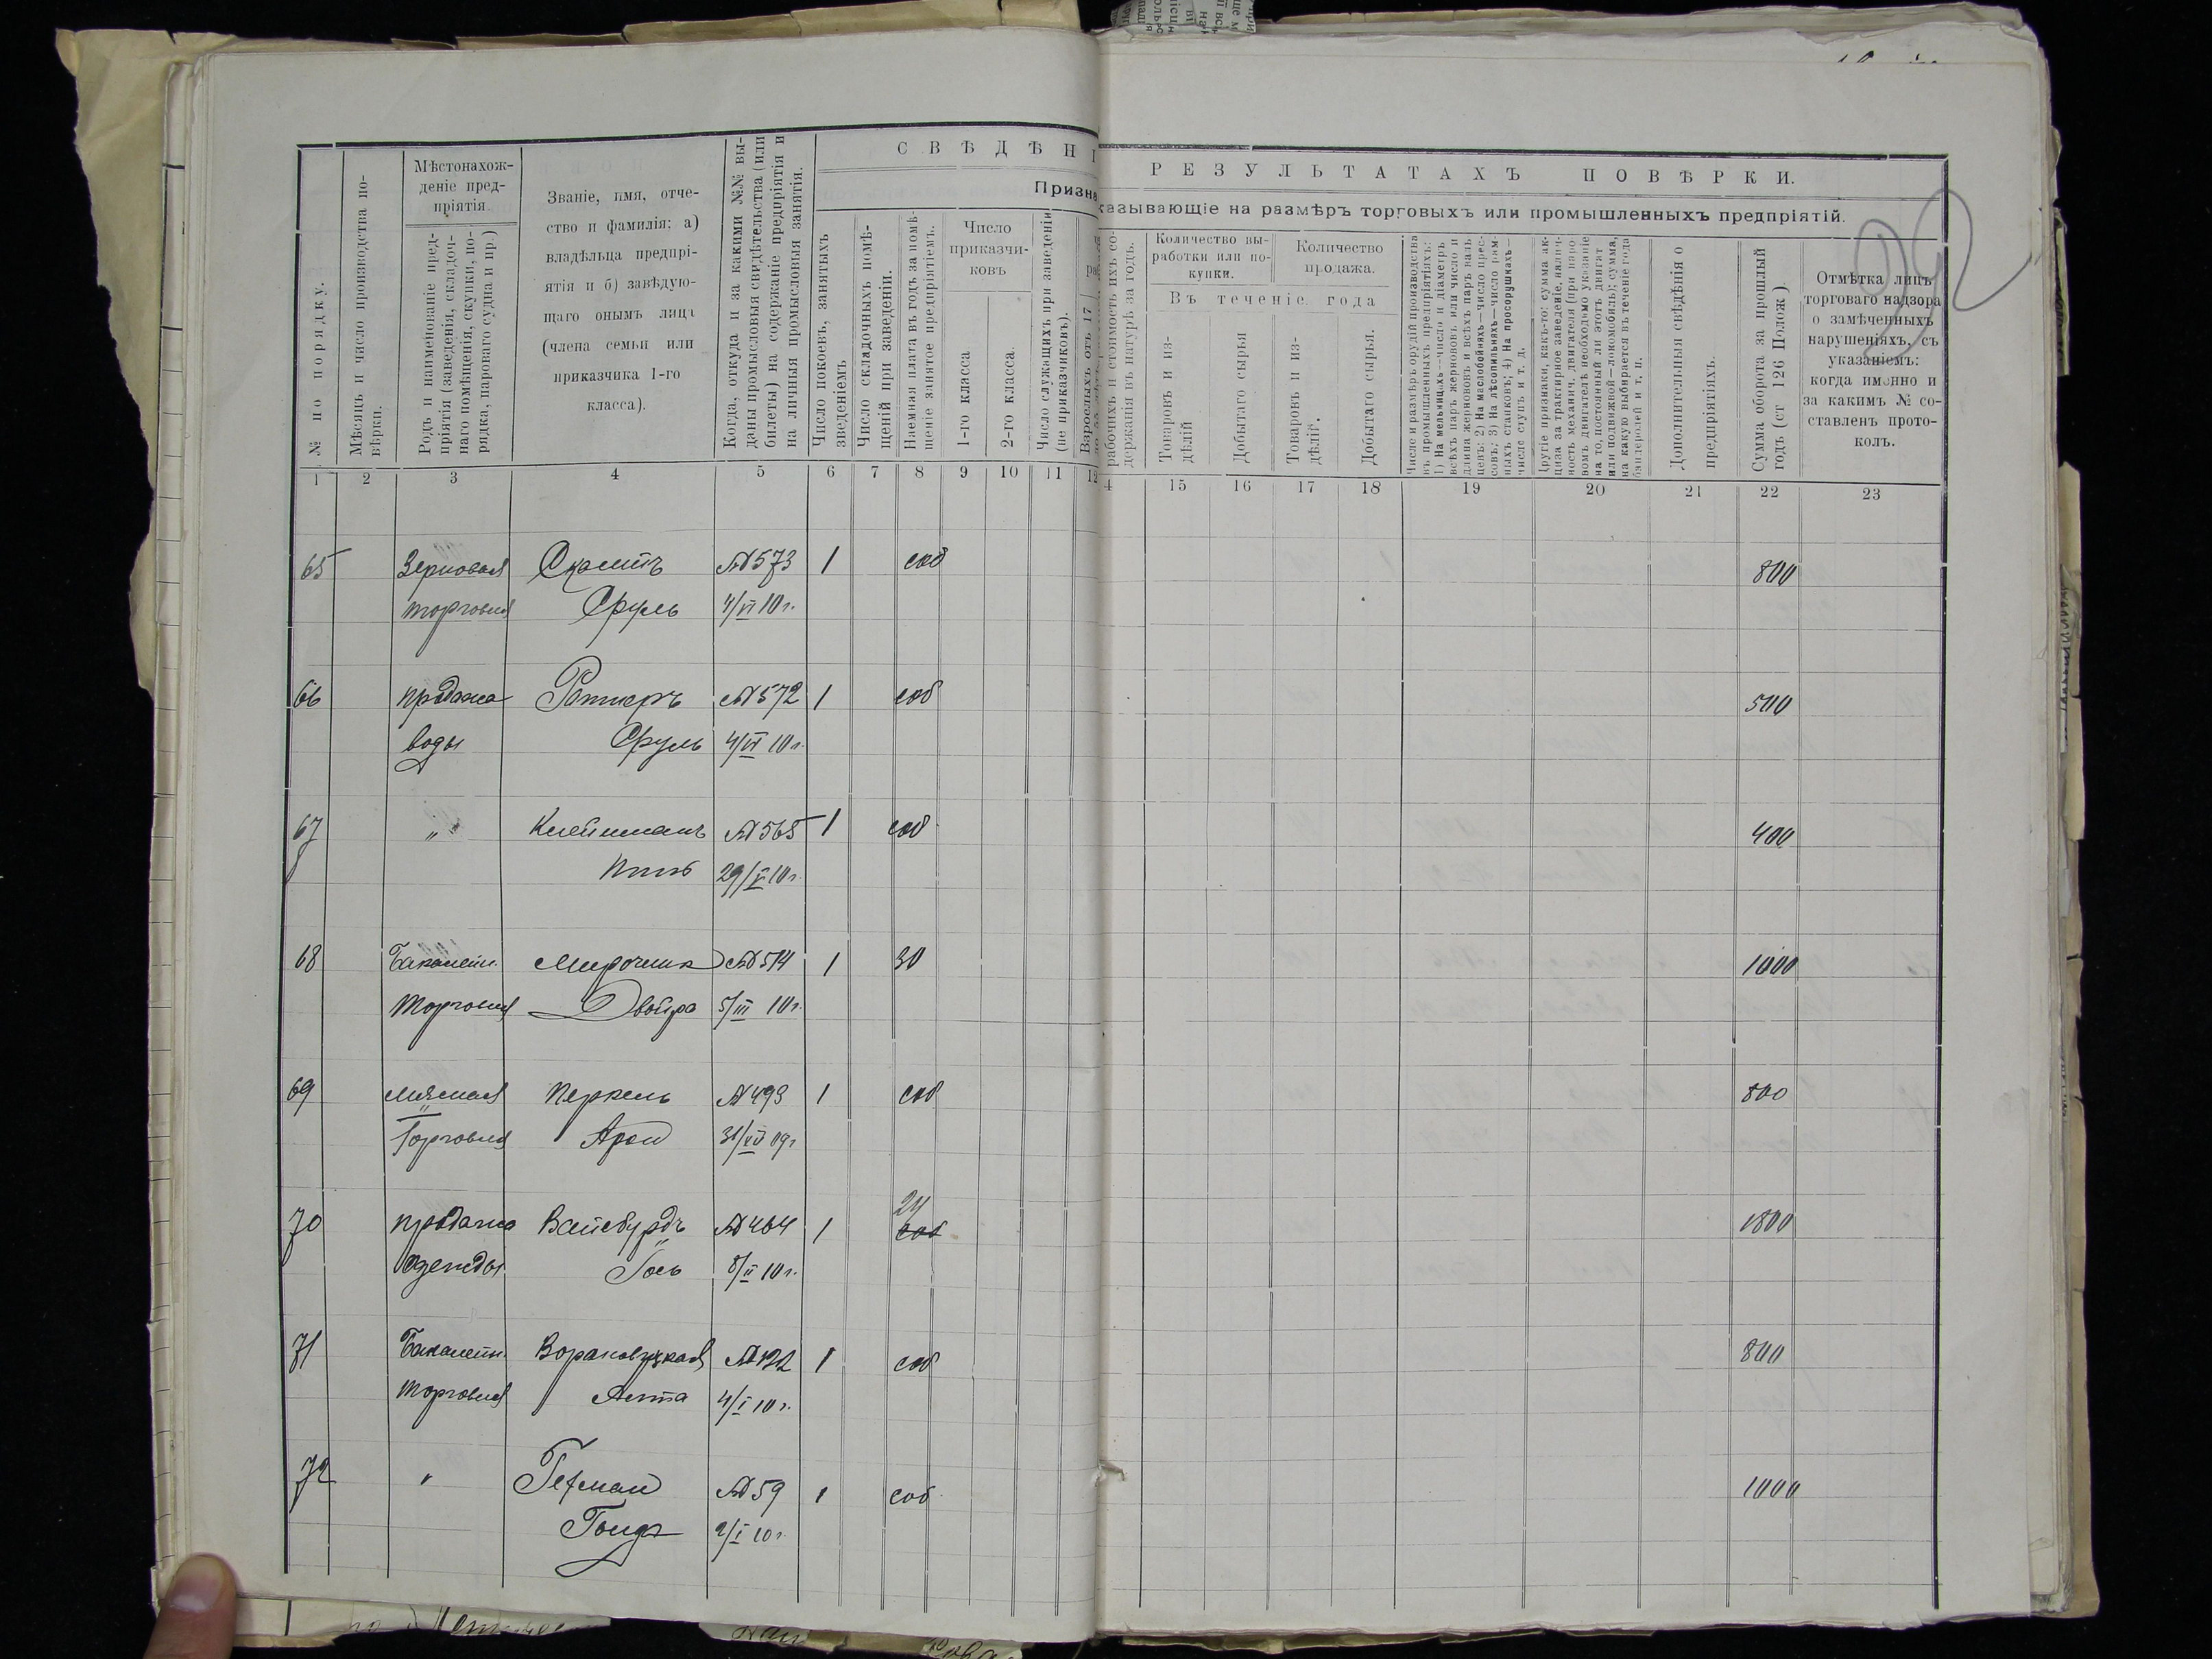 СВѢДѢНІ
РЕЗУЛЬТАТАХЪ ПОВѢРКИ.
Призна
казывающіе на размѣръ торговыхъ или промышленныхъ предпріятій.
№ по порядку.
Мѣсяцъ и число производства по-
вѣрки.
Мѣстонахож-
деніе пред-
пріятія
Родъ и наименованіе пред-
пріятія (заведенія, складоч-
наго помѣщенія, скупки, по-
рядка, пароваго судна и пр.)
Званіе, имя, отче-
ство и фамилія: а)
владѣльца предпрі-
ятія и б) завѣдую-
щаго онымъ лица
(члена семьи или
приказчика 1-го
класса).
Когда, откуда и за какими №№ вы-
даны промысловыя свидѣтельства (или
билеты) на содержаніе предпріятія и
на личныя промысловыя занятія.
Число покоевъ, занятыхъ
зведеніемъ
Число складочныхъ помѣ-
щеній при заведеніи.
Наемная плата въ годъ за помѣ-
щеніе занятое предпріятіемъ.
Число
приказчи-
ковъ
1-го класса
2-го класса.
Число служащихъ при заведеніи
(не приказчиковъ).
Взрослыхъ отъ 17
рабочихъ и стоимость ихъ со-
держанія въ натурѣ за годъ.
Количество вы-
работки или по-
купки.
Количество
продажа.
Въ теченіе года
Товаровъ и из-
дѣлій
Добытаго сырья
Товаровъ и из-
дѣлій.
Добытаго сырья.
Число и размѣръ орудій производства
въ промышленныхъ предпріятіяхъ:
1) На мельницахъ—число и діаметръ
всѣхъ паръ жернововъ или число и
длина жерновъ и всѣхъ паръ валь
цевъ: 2) На маслобойняхъ—число прес-
совъ; 3) На лѣсопильняхъ—число рам-
ныхъ станковъ; 4) На просорушкахъ—
число ступъ и т. д.
Другіе признаки, какъ-то: сумма ак-
циза за трактирное заведеніе, налич-
ность механич. двигателя (при паро-
вомъ двигателѣ необходимо указаніе
на то, постоянный ли этотъ двигат
или подвижной—локомобиль); сумма,
на какую выбирается въ теченіе года
бандеролей и т. п.
Дополнительныя свѣдѣнія о
предпріятіяхъ.
Сумма оборота за прошлый
годъ (ст 126 Полож )
Отмѣтка лицъ
торговаго надзора
о замѣченныхъ
нарушеніяхъ, съ
указаніемъ:
когда именно и
за какимъ № со-
ставленъ прото-
колъ.
1 2 3 4 5 6 7 8 9 10 11 12
4 15 16 17 18 19 20 21 22 23
65 Зерновая №573 1 соб 800
торговля Сруль 4/VI 10 г.
66 продажа Ратнеръ №572 1 соб 500
воды Сруль 4/VI 10 г.
67 „ Клейманъ №565 1 соб 400
29/V 10 г.
68 Бакалейн. Мирочник №514 1 30 1000
торговля Двойра 5/III 10 г.
69 Мясная Перкель №493 1 соб 800
Торговля Арон 31/XII 09 г
24
70 продажа Вайсбурдъ №464 1 соб 1800
одежды 8/II 10 г.
71 Бакалейн. №122 1 соб 800
торговля 4/I 10 г.
72 " Гехман №59 1 соб 1000
2/I 10 г.